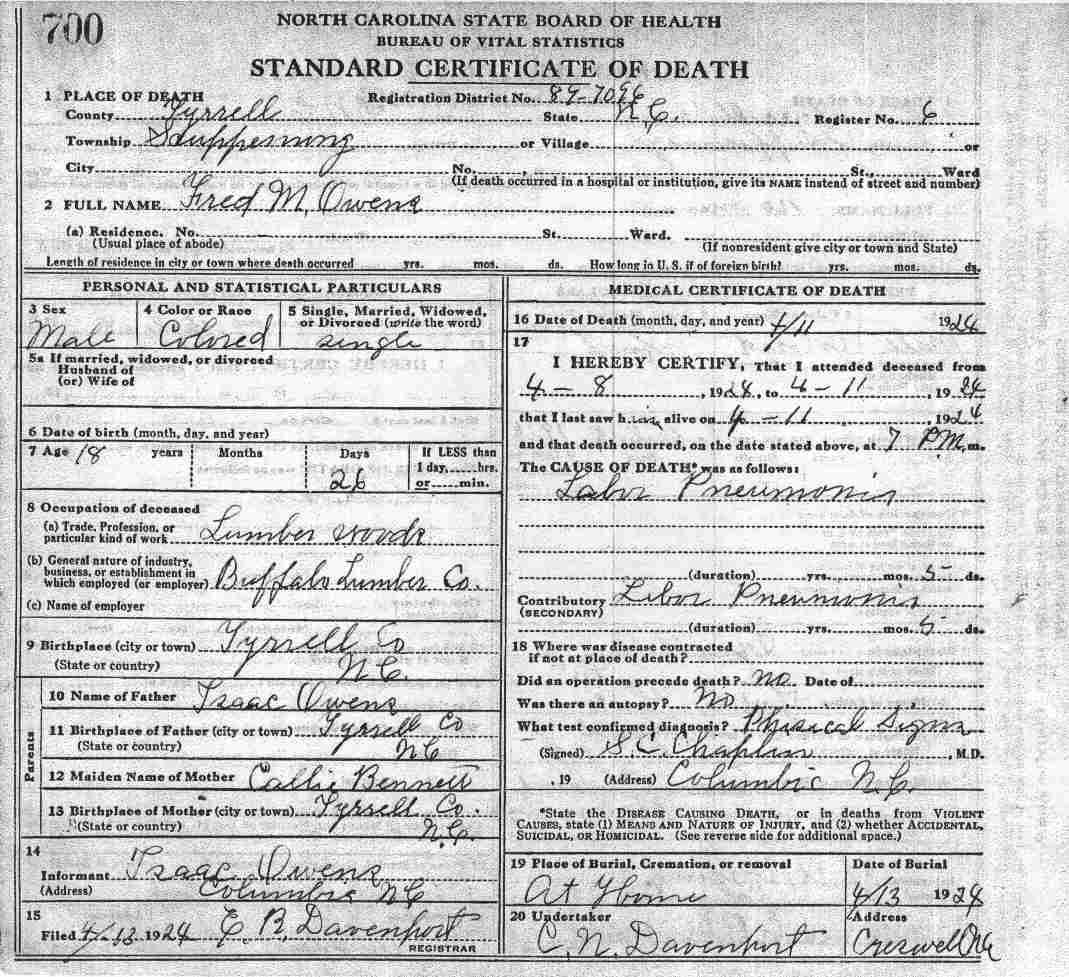 700
NORTH CAROLINA STATE BOARD OF HEALTH
BUREAU OF VITAL STATISTICS
STANDARD CERTIFICATE OF DEATH
1 PLACE OF DEATH Registration District No. 89-7096
County Tyrrell State N.C. Register No. 6
Township Scuppernong or Village or
City No. St., Ward
(If death occurred in a hospital or institution, give its NAME instead of street and number)
2 FULL NAME Fred M. Owens
(a) Residence. No. St. Ward.
(Usual place of abode) (If nonresident give city or town and State)
Length of residence in city or town where death occurred yrs. mos. ds. How long in U. S. if of foreign birth? yrs. mos. ds.
PERSONAL AND STATISTICAL PARTICULARS
3 Sex 4 Color or Race 5 Single, Married, Widowed, or Divorced (write the word)
Male Colored single
5a If married, widowed, or divorced
Husband of
(or) Wife of
6 Date of birth (month, day, and year)
7 Age 18 years Months Days 26 If LESS than
1 day,......hrs.
or......min.
8 Occupation of deceased
(a) Trade, Profession, or
particular kind of work Lumber woods
(b) General nature of industry,
business, or establishment in
which employed (or employer) Buffalo Lumber Co.
(c) Name of employer
9 Birthplace (city or town) Tyrrell Co
(State or country) N.C.
Parents
10 Name of Father Isaac Owens
11 Birthplace of Father (city or town) Tyrrell Co
(State or country) NC
12 Maiden Name of Mother Callie Bennett
13 Birthplace of Mother (city or town) Tyrrell Co.
(State or country) N.C.
14
Informant Isaac Owens
(Address) Columbia NC
15
Filed 4/13 1924 C. R. Davenport
REGISTRAR
MEDICAL CERTIFICATE OF DEATH
16 Date of Death (month, day, and year) 4/11 1924
17
I HEREBY CERTIFY, That I attended deceased from
4 – 8, 1924, to 4 – 11, 1924
that I last saw him alive on 4 – 11, 1924
and that death occurred, on the date stated above, at 7 P.M. m.
The CAUSE OF DEATH* was as follows:
Labor Pneumonia
(duration) yrs. mos. 5 ds.
Contributory Labor Pneumonia
(SECONDARY)
(duration) yrs. mos. 5 ds.
18 Where was disease contracted
if not at place of death?
Did an operation precede death? No Date of
Was there an autopsy? No
What test confirmed diagnosis? Phisical Signs
(Signed) S. C. Chaplin, M.D.
, 19 (Address) Columbia N.C.
*State the DISEASE CAUSING DEATH, or in deaths from VIOLENT
CAUSES, state (1) MEANS AND NATURE OF INJURY, and (2) whether ACCIDENTAL,
SUICIDAL, OR HOMICIDAL. (See reverse side for additional space.)
19 Place of Burial, Cremation, or removal Date of Burial
At Home 4/13 1924
20 Undertaker Address
C. N. Davenport Creswell